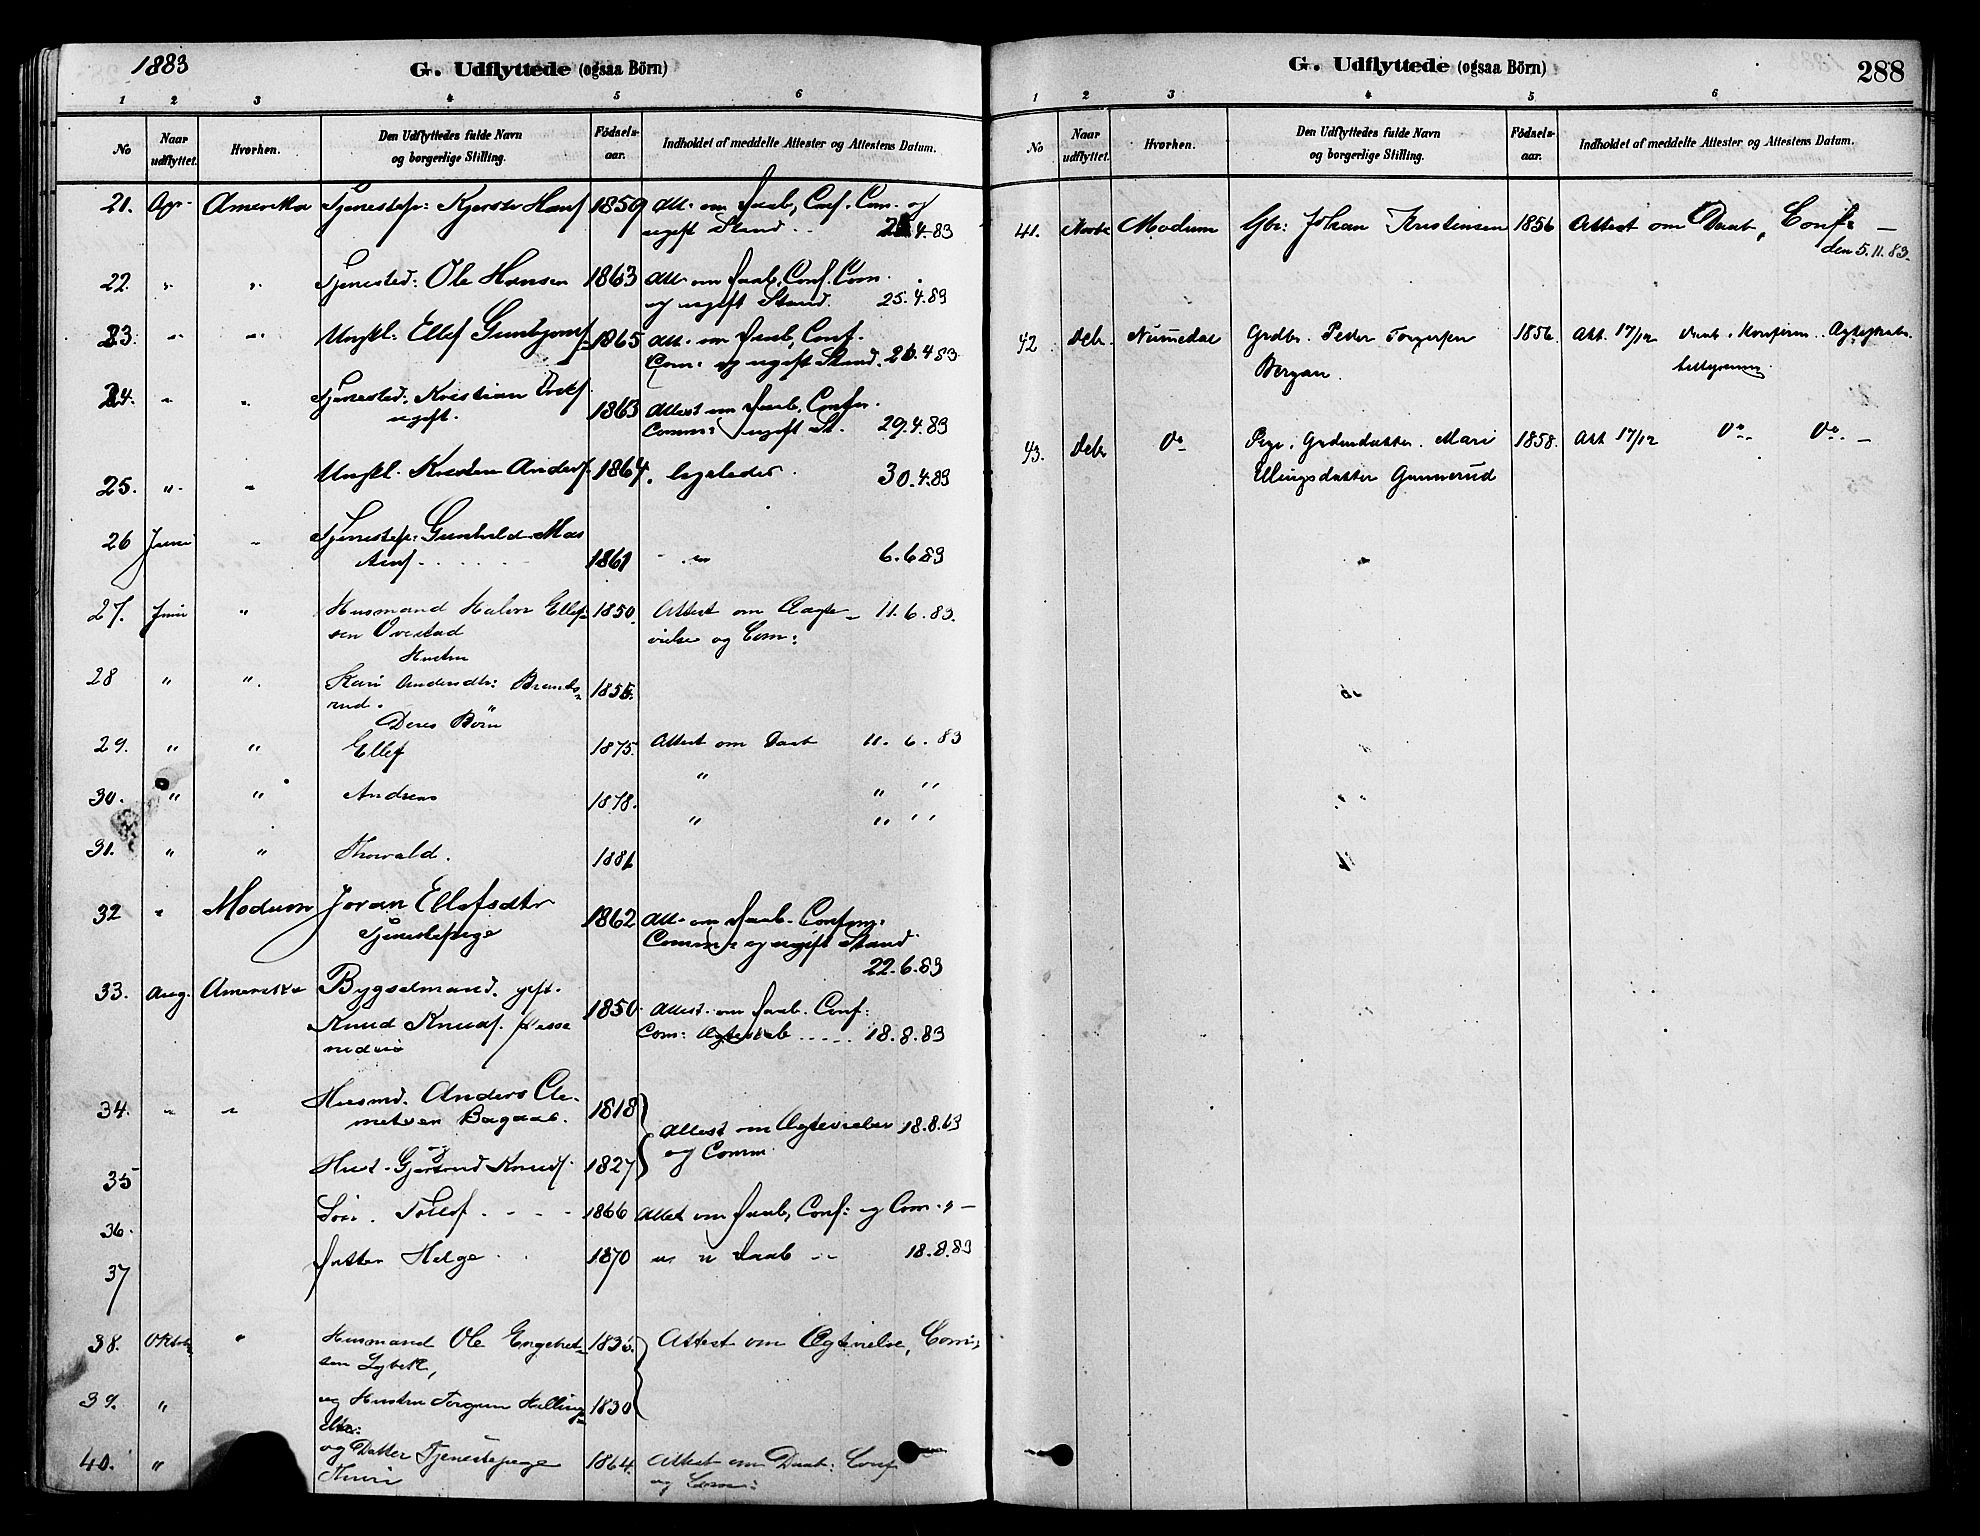 1883
G. Udflyttede (ogsaa Börn)
1 2 3 4 5 6
No
Naar udflyttet.
Hvorhen.
Den Udflyttedes fulde Navn og borgerlige Stilling.
Fødsels-aar.
Indholdet af meddelte Attester og Attestens Datum.
21. Apr. Amerika Tjenestep: Kjersti Hansd 1859 Att. om Daab, Conf. Com. og
ugift Stand .. 4.83
22. " " Tjenested: Ole Hansen 1863 Att. om Daab, Conf. Com.
og ugift Stand. 25.4.83
23. " " Ungkl. Ellef 1865 Att. om Daab, Conf.
Com: og ugift Stand. 26.4.83
24. " " Tjenested. Kristian
ugift. 1863 Attest om Daab, Conf.
Comm: ugift St. 29.4.83
25. " " Ungkl. Kristen Anders 1864. ligeledes. 30.4.83
26 Juni " Tjenestep: Gunhild
1861 " " 6.6.83
27. Juni " Husmand Halvor Ellef-
sen Overstad 1850. Attest om Ægte- 11.6.83.
vielse og Com:
Hustru
28 " " Kari Andersdtr: Brands-
rud. 1855.
Deres Börn
29. " " Ellef 1875. Attest om Daab 11. 6. 83
30. " " Andreas 1878. " " "
31. " " Thorvald. 1881 " " "
32 " Modum Joran Ellefsdtr
Tjenestepige 1862 Att. om Daab. Conform:
Comm: og ugift Stand
22.6.83
33. Aug. Amerika Bygselmand. gift.
Knud Knuds. 1850. Attest. om Daab. Conf:
Com: Ægteskab ..... 18.8.83
34. " " Husmd. Anders Cle-
metsen Bagaas. 1818
Attest om Ægtevielse 18.8.83
og Comm
og
35 Hust. Gjertrud Knuds. 1827
36. Sön. Tollef .... 1866 Attest om Daab, Conf: og Com. " —
37 Datter Helge .. 1870 " " Daab " 18.8.83
38. Oktober " Husmand Ole Engebret-
sen Lybek, 1835. Attest om Ægtevielse, Com:
39. " og Hustru Jorgun Hellings-
dtr: 1830
40. " og Datter Tjenestepige
1864. Attest om Daab: Conf
og Com:
G. Udflyttede (ogsaa Börn)
288
1 2 3 4 5 6
No
Naar udflyttet.
Hvorhen.
Den Udflyttedes fulde Navn og borgerlige Stilling.
Fødsels-aar.
Indholdet af meddelte Attester og Attestens Datum.
41. Modum Gbr: Johan Kristensen 1856 Attest om Daab, Conf: —
den 5.11.83.
42 Debr. Numedal Grdbr. Peder Torgersen
Bergan. 1856. Att. 17/12 Daab. Konfirm..
43. Debr Do Pige, Grdmdatter. Mari
Ellingsdatter Gunnerud 1858. Att 17/12 Do.. Do. —